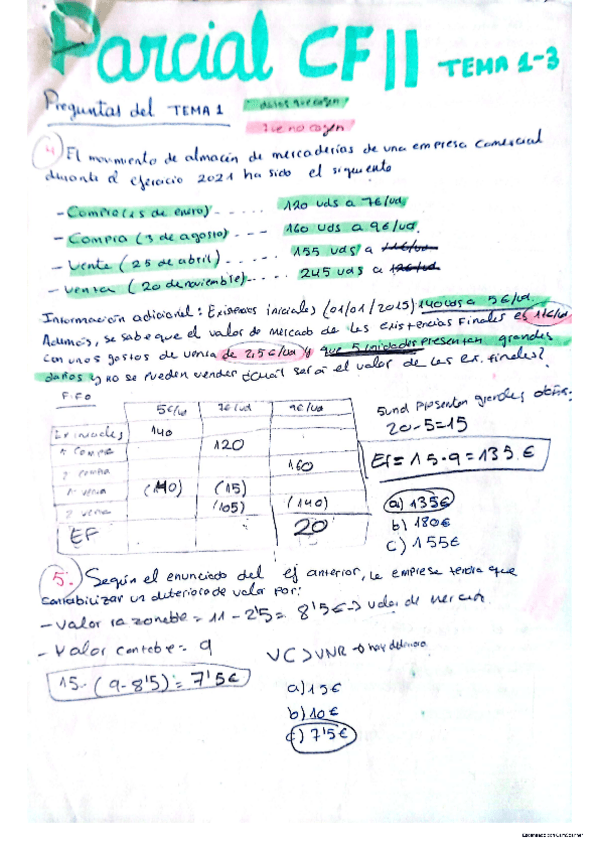 Parcial CF II TEMA 1-3
Preguntas del TEMA 1
datos que cogen
que no cogen
4. El movimiento de almacén de mercaderías de una empresa comercial
durante el ejercicio 2021 ha sido el siguiente
- Compra (15 de enero) - - - - - 120 uds a 7€/ud
- Compra (3 de agosto) - - - 160 uds a 9€/ud.
- Venta (25 de abril) - - - - - 155 uds a 11€/ud
- Venta (20 de noviembre) - - - - 245 uds a 12€/ud
Información adicional: Existencias iniciales (01/01/2015) 140 uds a 5€/ud.
Además, se sabe que el valor de mercado de las existencias finales es 11€/ud
con unos gastos de venta de 2,5€/ud y que 5 unidades presentan grandes
daños y no se pueden vender ¿cuál será el valor de las ex. finales?
FIFO
5€/ud 7€/ud 9€/ud
Ex iniciales 140
1ª compra 120
2ª compra 160
1ª venta (140) (15)
2ª venta (105) (140)
EF 20
5 und presentan grandes daños:
20-5=15
Ef = 15·9 = 135 €
a) 135€
b) 180€
c) 155€
5. Según el enunciado del ej anterior, la empresa tendría que
contabilizar un deterioro de valor por:
- Valor razonable = 11 - 2'5 = 8'5€ -> valor de mercado
- Valor contable = 9
15 · (9-8'5) = 7'5€
VC > VNR -> hay deterioro
a) 15€
b) 10€
c) 7'5€